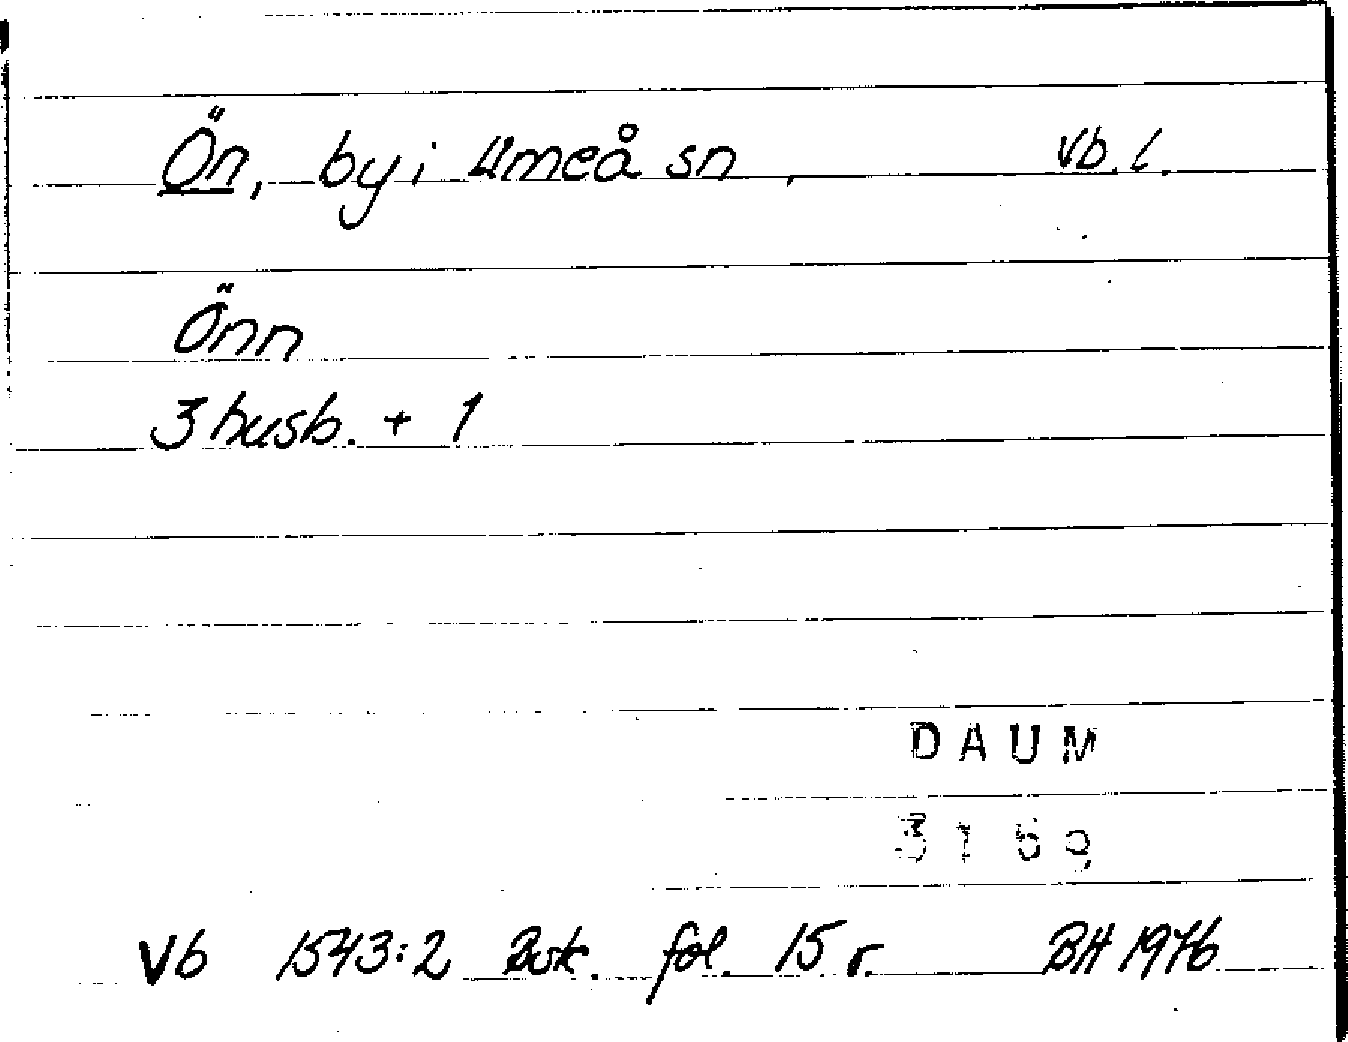 Ön, by i Umeå sn, Vb. l.
Önn
3 husb. + 1
DAUM
3169
Vb 1543:2 Bvk. fol. 15 r. BH 1976